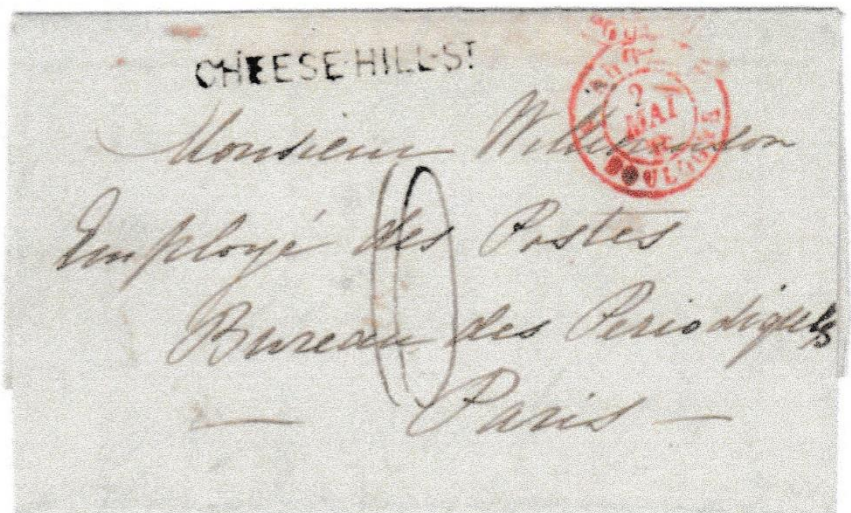 CHEESE-HILL-ST
2
MAI
BOULOGNE
Monsieur
Employé des Postes
Bureau des Periodiques
Paris